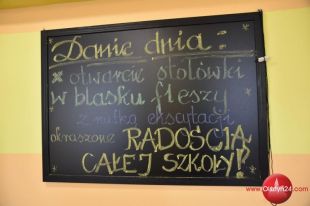 Danie dnia:
* otwarcie stołówki
w blasku fleszy
z nutką ekscytacji
okraszone RADOŚCIĄ
CAŁEJ SZKOŁY!
www.Olsztyn24.com